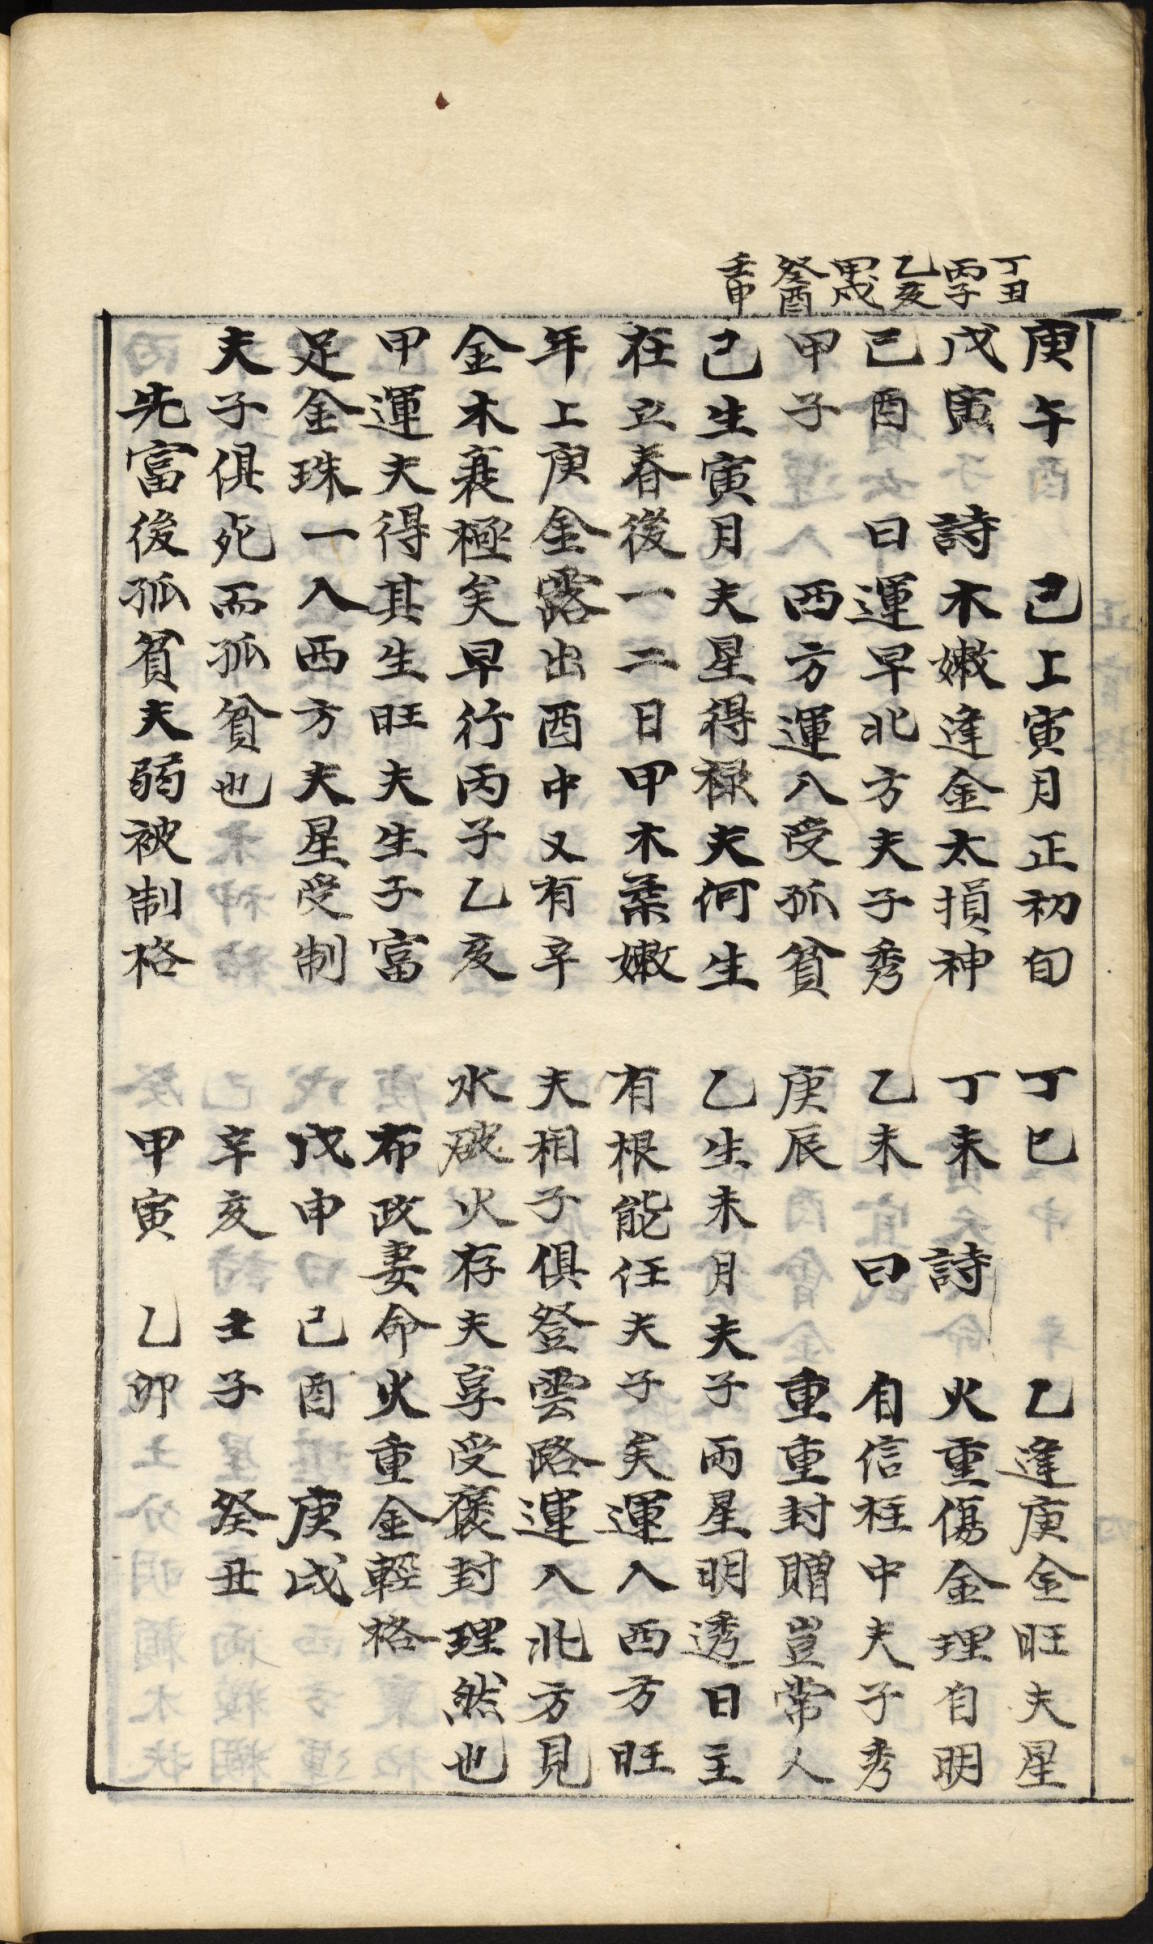 丁丑
丙子
乙亥
甲戌
癸酉
壬申
庚午 己上寅月正初旬
戊寅 詩 木嫩逢金太損神
己酉 曰 運早北方夫子秀
甲子 西方運入受孤貧
己生寅月夫星得祿夫何生
在立春後一二日甲木柔嫩
年上庚金露出酉中又有辛
金木衰極矣早行丙子乙亥
甲運夫得其生旺夫生子富
足金珠一入西方夫星受制
夫子俱死而孤貧也
先富後孤貧夫弱被制格
丁巳 乙逢庚金旺夫星
丁未 詩 火重傷金理自明
乙未 曰 自信柱中夫子秀
庚辰 重重封贈豈常人
乙生未月夫子兩星明透日主
有根能任夫子矣運入西方旺
夫相子俱登雲路運入北方見
水破火存夫享受褒封理然也
布政妻命火重金輕格
戊申 己酉 庚戌
辛亥 壬子 癸丑
甲寅 乙卯